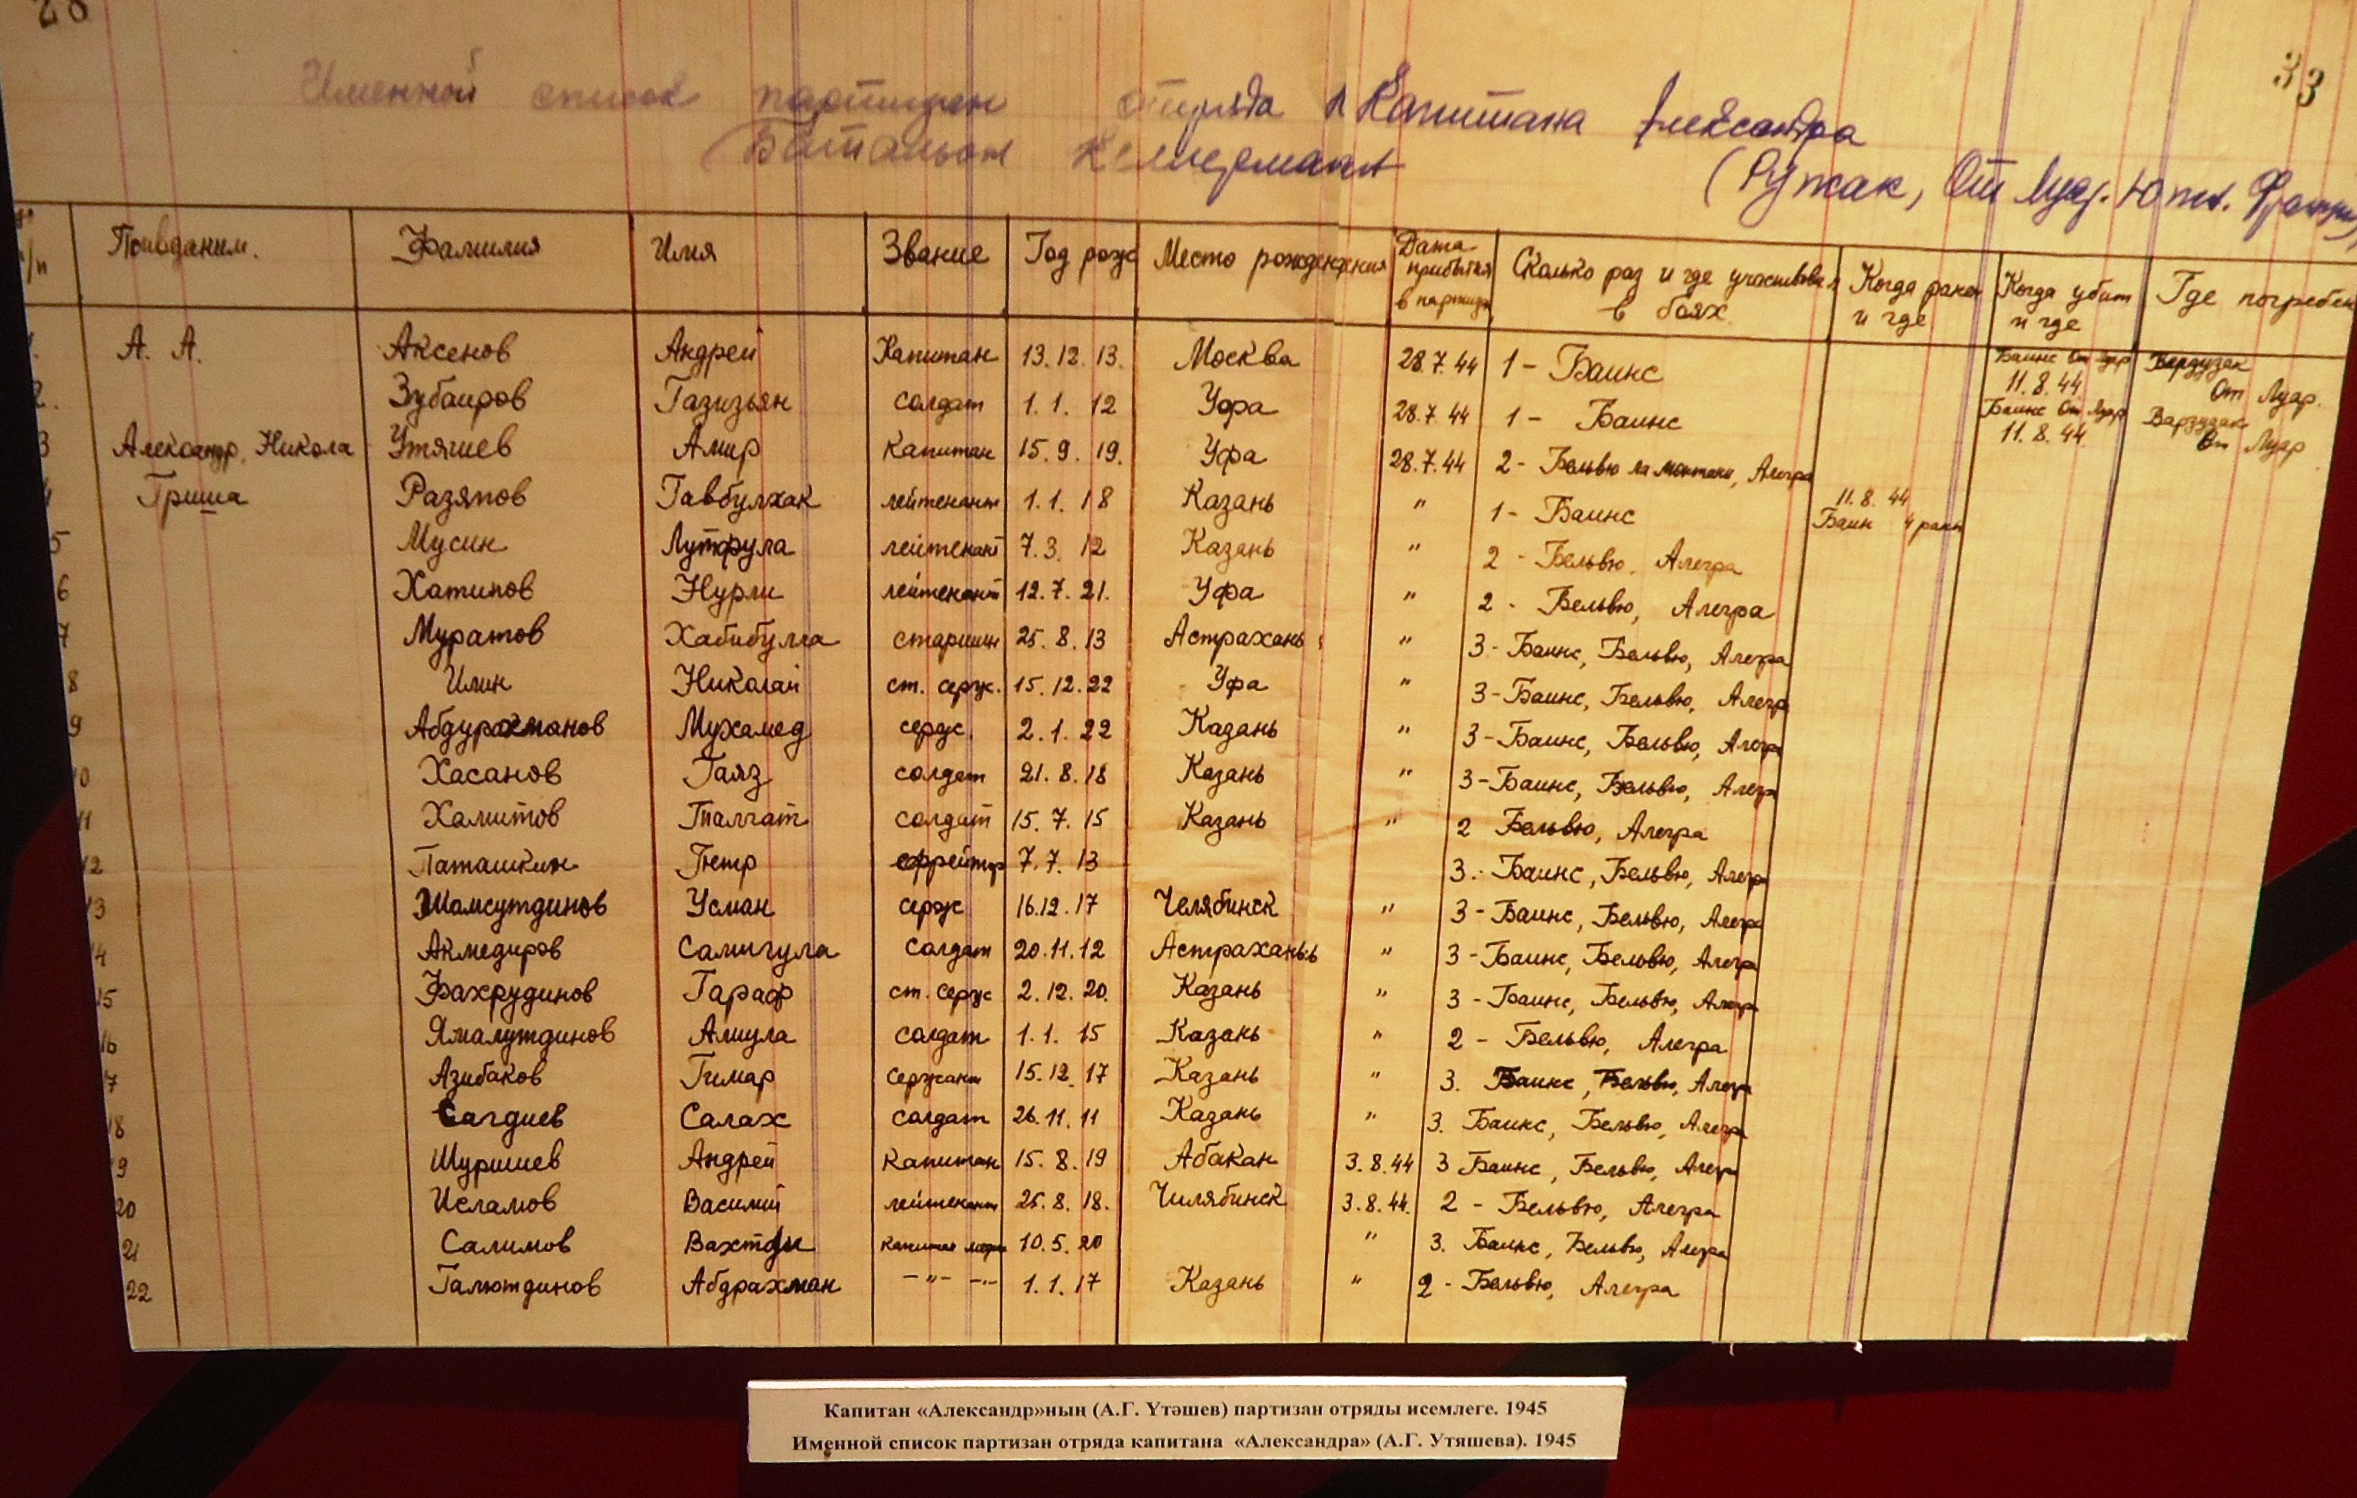 28
33
Именной список партизан отряда Капитана Александра
(Батальон
(Ружак, От Луар. Южн.
п/п Псевданим. Фамилия Имя Звание Год рож Место рождения Дата прибытия в партизан Сколько раз и где участвовал в боях Когда ранен и где Когда убит и где Где погребен
1. А. А. Аксенов Андрей Капитан 13.12.13. Москва 28.7.44 1 - Баинс Баинс От Луар 11.8.44 Вердузак От Луар.
2. Зубаиров Газизьян солдат 1.1.12 Уфа 28.7.44 1 - Баинс Баинс От Луар 11.8.44. Варзузак От Луар
3 Александр, Никола Утяшев Амир Капитан 15.9.19. Уфа 28.7.44 2 - Бельвю ла монтани, Алегра
4 Гриша Разяпов Гавбулхак лейтенант 1.1.18 Казань " 1 - Баинс 11.8.44 Баин
5 Мусин Лутфула лейтенант 7.3.12 Казань " 2 - Бельвю, Алегра
6 Хатипов Нурли лейтенант 12.7.21. Уфа " 2 - Бельвю, Алегра
7 Муратов Хабибулла старшин 25.8.13 Астрахань " 3 - Баинс, Бельвю, Алегра
8 Илин Николай ст. серж. 15.12.22 Уфа " 3 - Баинс, Бельвю, Алегр
9 Абдурахманов Мухамед серж. 2.1.22 Казань " 3 - Баинс, Бельвю, Алегра
10 Хасанов Гаяз солдат 21.8.18 Казань " 3 - Баинс, Бельвю, Алегр
11 Хамитов Талгат солдат 15.7.15 Казань " 2 Бельвю, Алегра
12 Паташкин Петр ефрейтор 7.7.13 3. - Баинс, Бельвю, Алегр
13 Шамсутдинов Усман серж 16.12.17 Челябинск " 3 - Баинс, Бельвю, Алегр
14 Акмедиров Самигула солдат 20.11.12 Астрахань " 3 - Баинс, Бельвю, Алегр
15 Фахрудинов Гараф ст. серж 2.12.20. Казань " 3 - Баинс, Бельвю, Алегр
16 Ямалутдинов Амула солдат 1.1.15 Казань " 2 - Бельвю, Алегра
17 Азибаков Гимар сержант 15.12.17 Казань " 3. Баинс, Бельвю, Алегр
18 Сагдиев Салах солдат 26.11.11 Казань " 3. Баинс, Бельвю, Алегр
19 Шуршиев Андрей Капитан 15.8.19 Абакан 3.8.44 3 Баинс, Бельвю, Алегр
20 Исламов Василий лейтенант 25.8.18. Чилябинск 3.8.44. 2 - Бельвю, Алегра
21 Салимов капитан 10.5.20 " 3. Баинс, Бельвю, Алегра
22 Галютдинов Абдрахман - " - - " - 1.1.17 Казань " 2 - Бельвю, Алегра
Капитан «Александр»ның (А.Г. Үтәшев) партизан отряды исемлеге. 1945
Именной список партизан отряда капитана «Александра» (А.Г. Утяшева). 1945